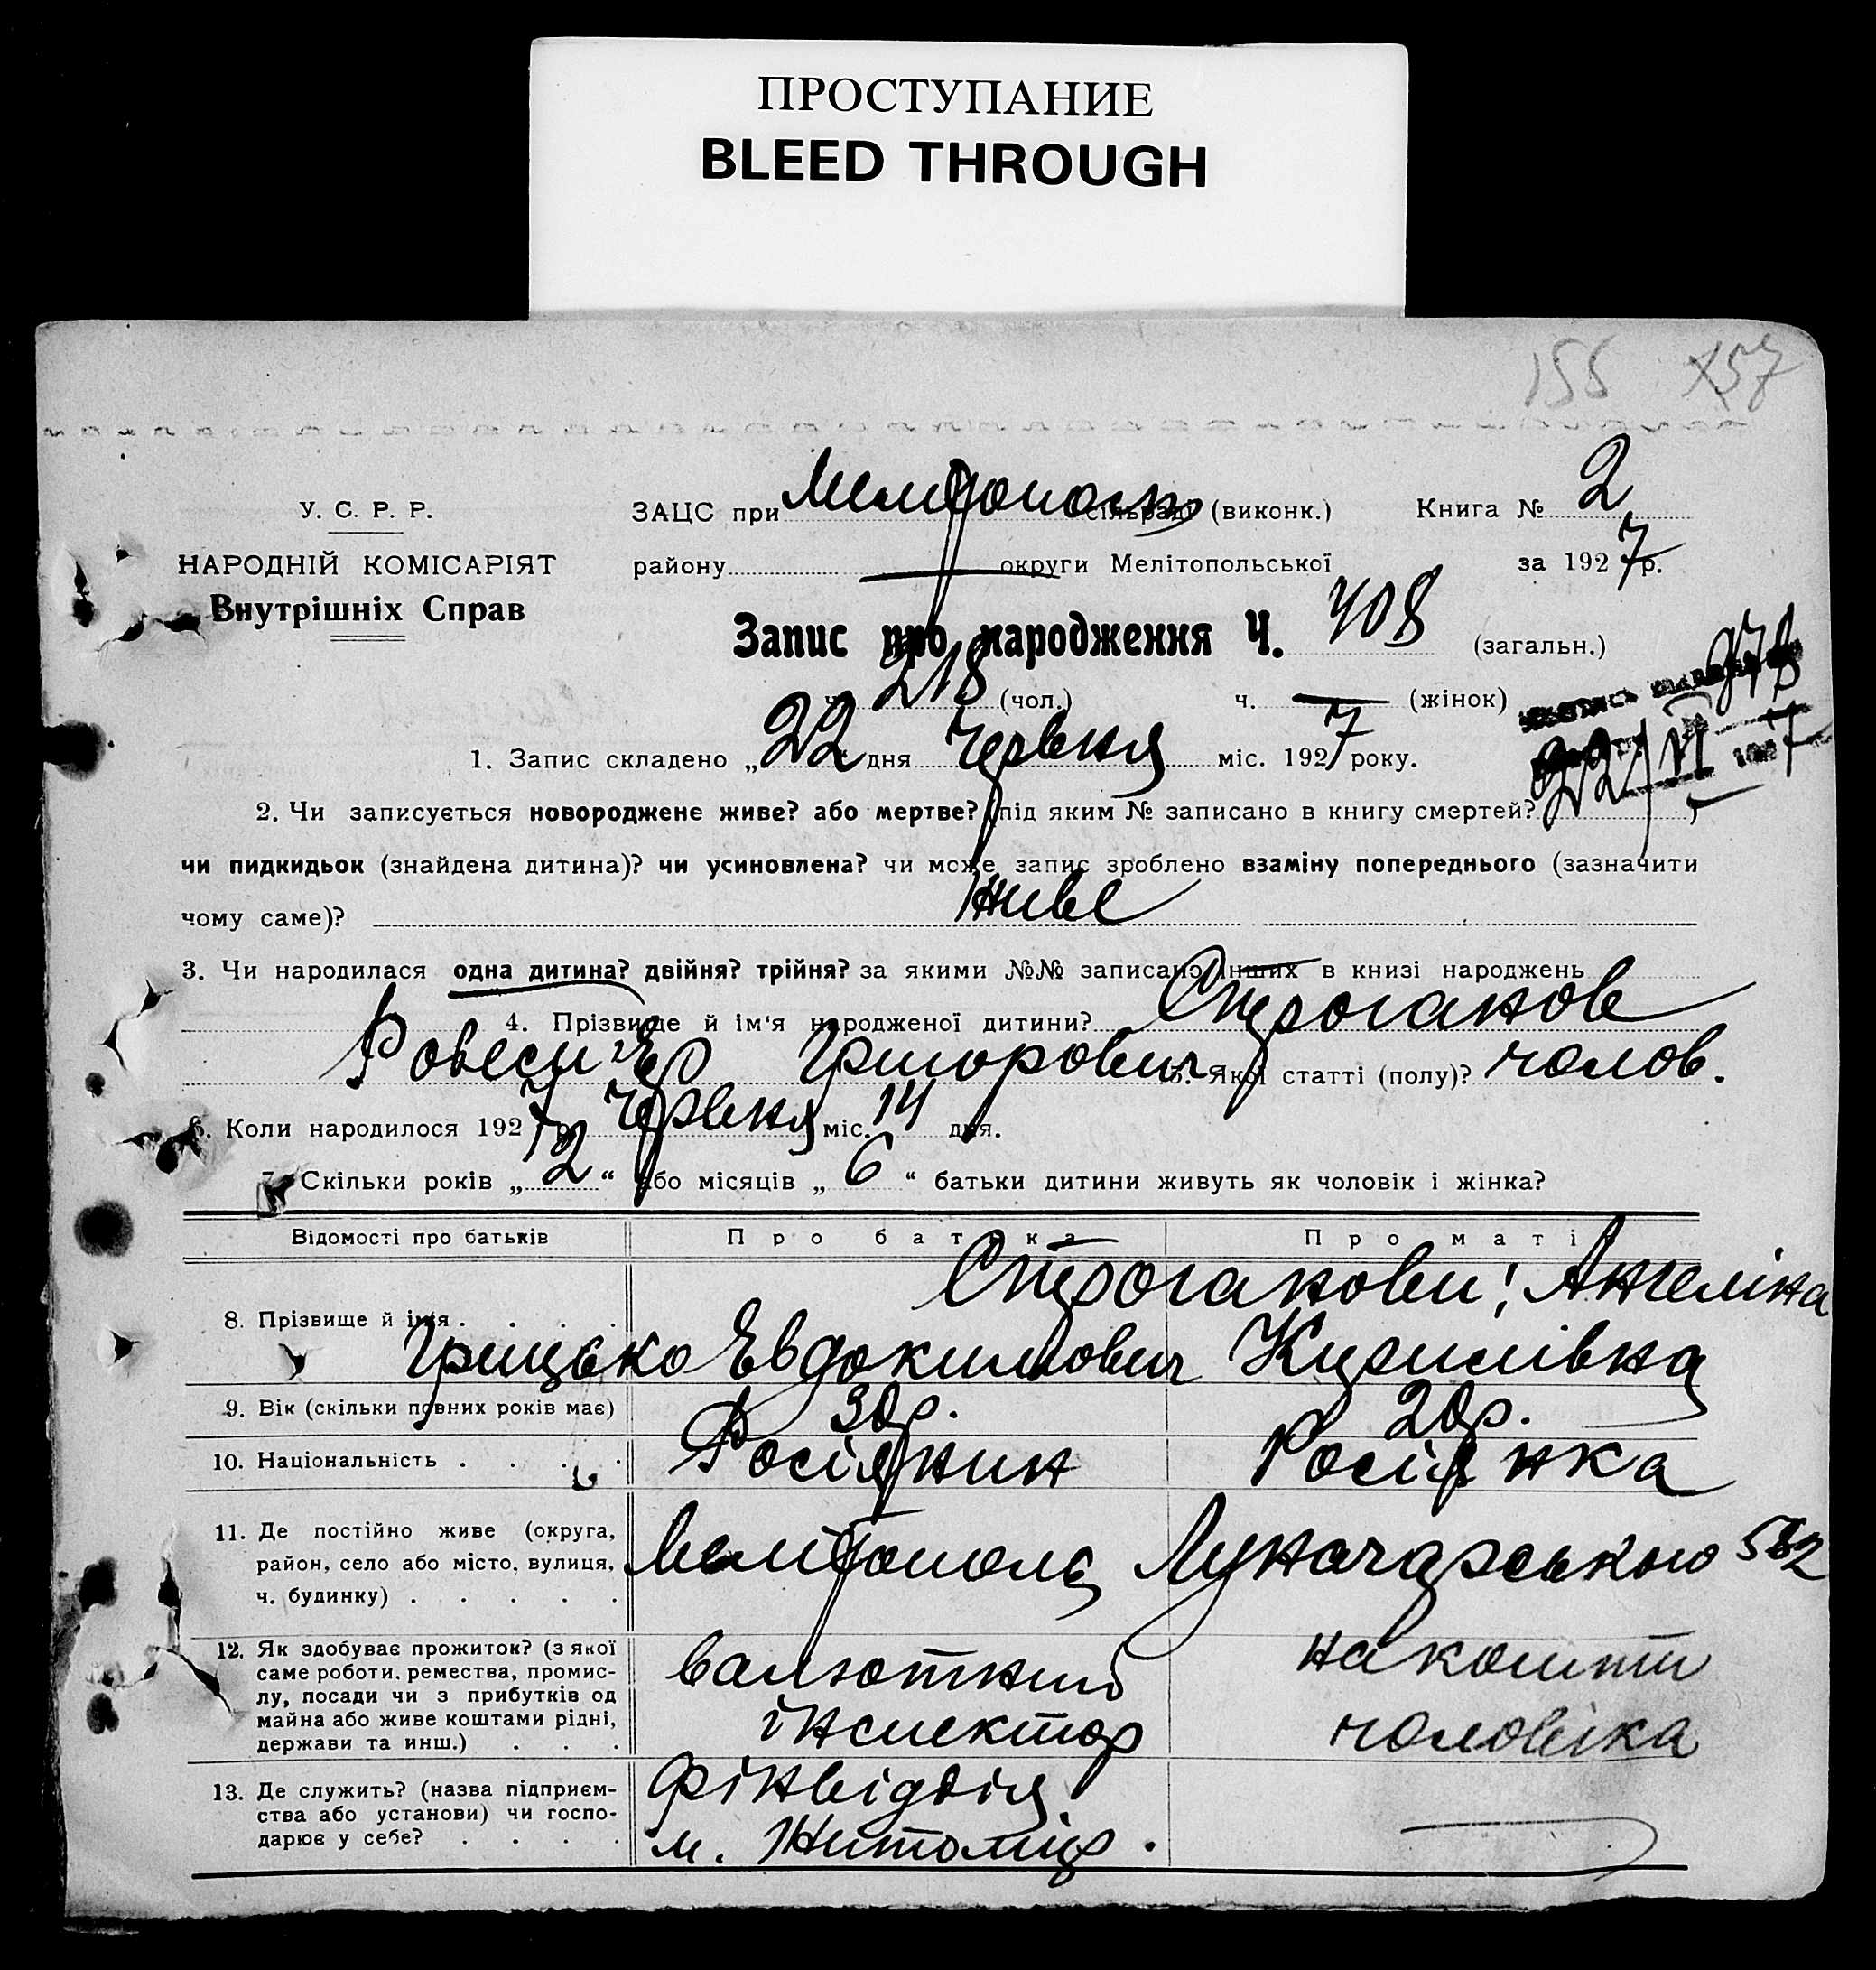 ПРОСТУПАНИЕ
BLEED THROUGH
155 157
У. С. Р. Р.
НАРОДНІЙ КОМІСАРІЯТ
Внутрішніх Справ
ЗАЦС при Мелітопольськ сільраді (виконк.) Книга № 2
району — округи Мелітопольської за 1927 р.
Запис про народження Ч. 408 (загальн.)
ч. 218 (чол.) ч. — (жінок)
978
22/VI 1927
1. Запис складено „22 дня Червня міс. 1927 року.
2. Чи записується новороджене живе? або мертве? (під яким № записано в книгу смертей?
чи пидкидьок (знайдена дитина)? чи усиновлена? чи може запис зроблено взаміну попереднього (зазначити
чому саме)? живе
3. Чи народилася одна дитина? двійня? трійня? за якими №№ записано інших в книзі народжень
4. Прізвище й ім'я народженої дитини? Строганов
Григорович 5. Якої статті (полу)? чолов.
6. Коли народилося 1927 р. Червня міс. 14 дня.
7. Скільки років „2“ або місяців „6“ батьки дитини живуть як чоловік і жінка?
Відомості про батьків Про батька Про матір
Строганови: Ангеліна
8. Прізвище й ім'я . . . .
Грицько Евдокимович Кирилівна
9. Вік (скільки повних років має) 30р. 20р.
10. Національність . . . . Росіянин Росіянка
11. Де постійно живе (округа,
район, село або місто, вулиця,
ч. будинку) . . . . .
Мелітополь Луначарського
12. Як здобуває прожиток? (з якої
саме роботи, ремества, промис-
лу, посади чи з прибутків од
майна або живе коштами рідні,
держави та инш.) . . .
валютний на кошти
інспектор чоловіка
13. Де служить? (назва підприєм-
ства або установи) чи госпо-
дарює у себе? . . . .
Фінвідділ
м. Житомир. —